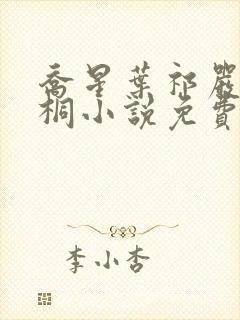 喬星葉祁嚴
桐小說免費
李小杏